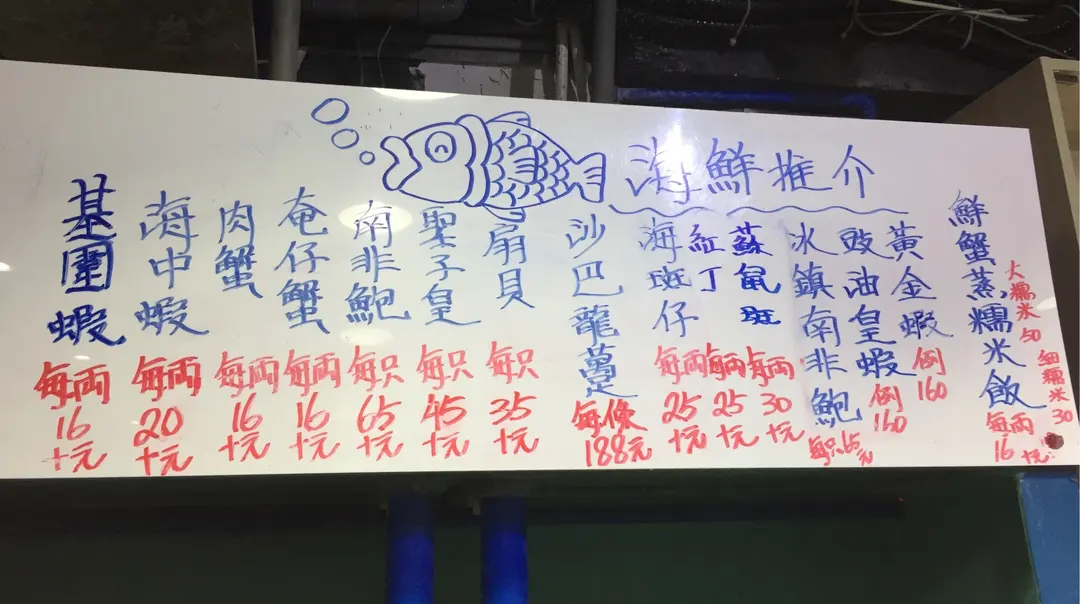 海鮮推介
基圍蝦
每両
16
十元
海中蝦
每両
20
十元
肉蟹
每両
16
十元
奄仔蟹
每両
16
十元
南非鮑
每只
65
十元
聖子皇
每只
45
十元
扇貝
每只
35
十元
沙巴龍躉
每條
188元
海斑仔
每両
25
十元
紅丁
每両
25
十元
蘇鼠斑
每両
30
十元
冰鎮南非鮑
每只65
元
豉油皇蝦
例
160
黃金蝦
例
160
鮮蟹蒸糯米飯
每両
16
十元
大糯米50
細糯米30